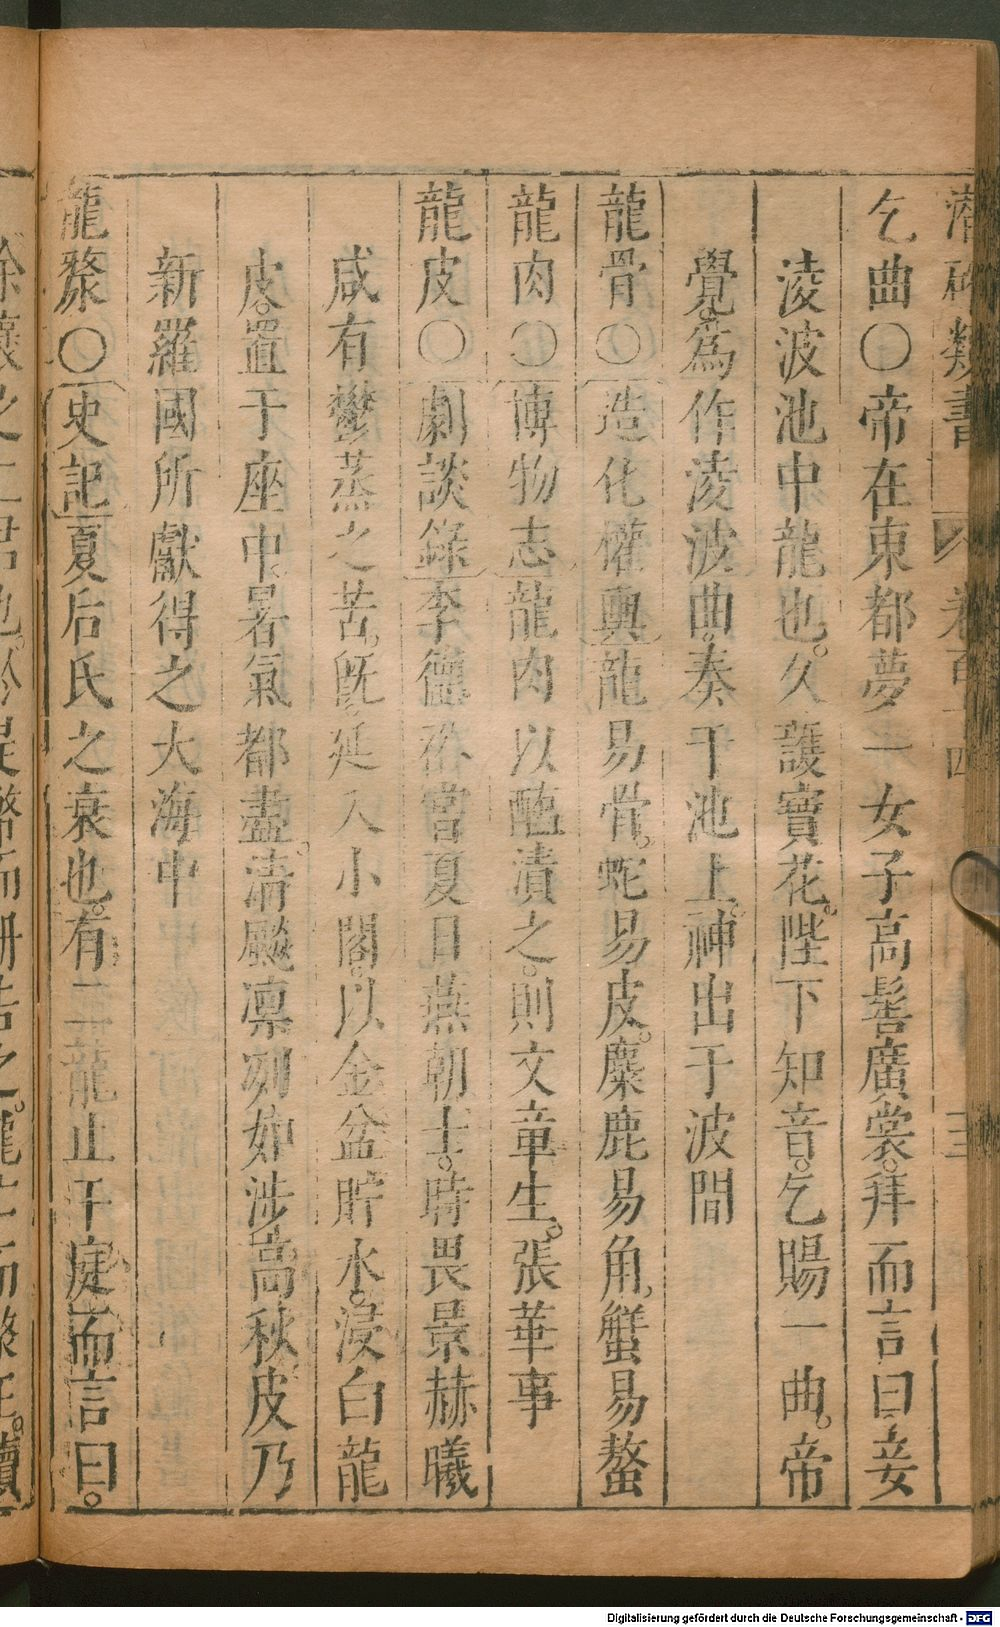 潛確類書 卷百十四 三
乞曲〇帝在東都夢一女子高髻廣裳。拜而言曰妾
淩波池中龍也。久護寶花。陛下知音。乞賜一曲。帝
覺。爲作淩波曲。奏于池上。神出于波間
龍骨〇造化權輿龍易骨。蛇易皮。麋鹿易角。蟹易螯
龍肉〇博物志龍肉以醢漬之。則文章生。張華事
龍皮〇劇談錄李德裕當夏日燕朝士。時畏景赫曦
咸有鬱蒸之苦。旣延入小閣。以金盆貯水。浸白龍
皮。置于座中。暑氣都盡。清飈凛冽如涉高秋皮乃
新羅國所獻得之大海中
龍漦〇史記夏后氏之衰也。有二龍止于庭而言曰。
Digitalisierung gefördert durch die Deutsche Forschungsgemeinschaft - DFG